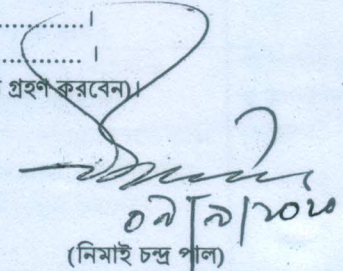 .................।
................ ।
গ্রহণ করবেন)।
০৯/৯/২০২০
(নিমাই চন্দ্র পাল)